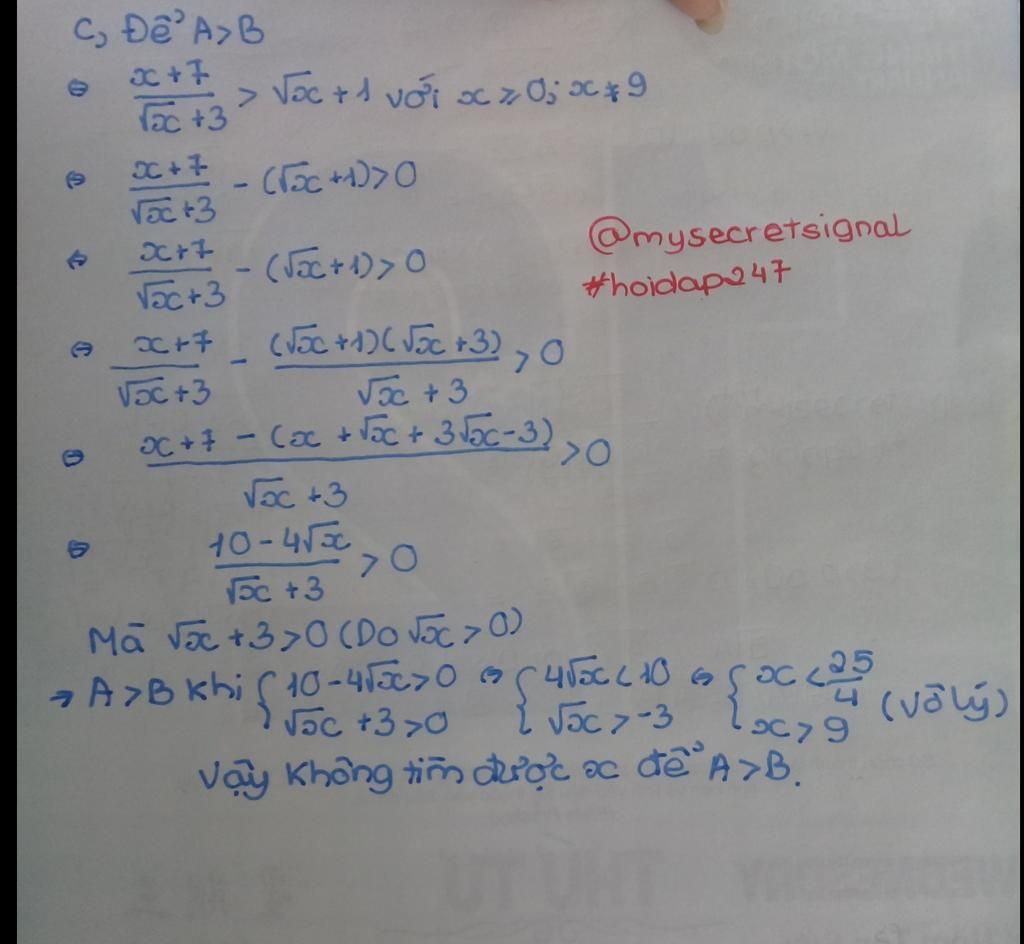 C, Để A>B
⇔ (x+7)/(√x+3) > √x+1 với x≥0; x≠9
⇔ (x+7)/(√x+3) - (√x+1)>0
⇔ (x+7)/(√x+3) - (√x+1)>0
@mysecretsignal
#hoidap247
⇔ (x+7)/(√x+3) - ((√x+1)(√x+3))/(√x+3) > 0
⇔ (x+7-(x+√x+3√x-3))/(√x+3) >0
⇔ (10-4√x)/(√x+3) > 0
Mà √x+3>0 (Do √x>0)
→ A>B khi { 10-4√x>0 ; √x+3>0 ⇔ { 4√x<10 ; √x>-3 ⇔ { x<25/4 ; x>9 (vô lý)
Vậy không tìm được x để A>B.
WEDNESDAY
THỨ TƯ